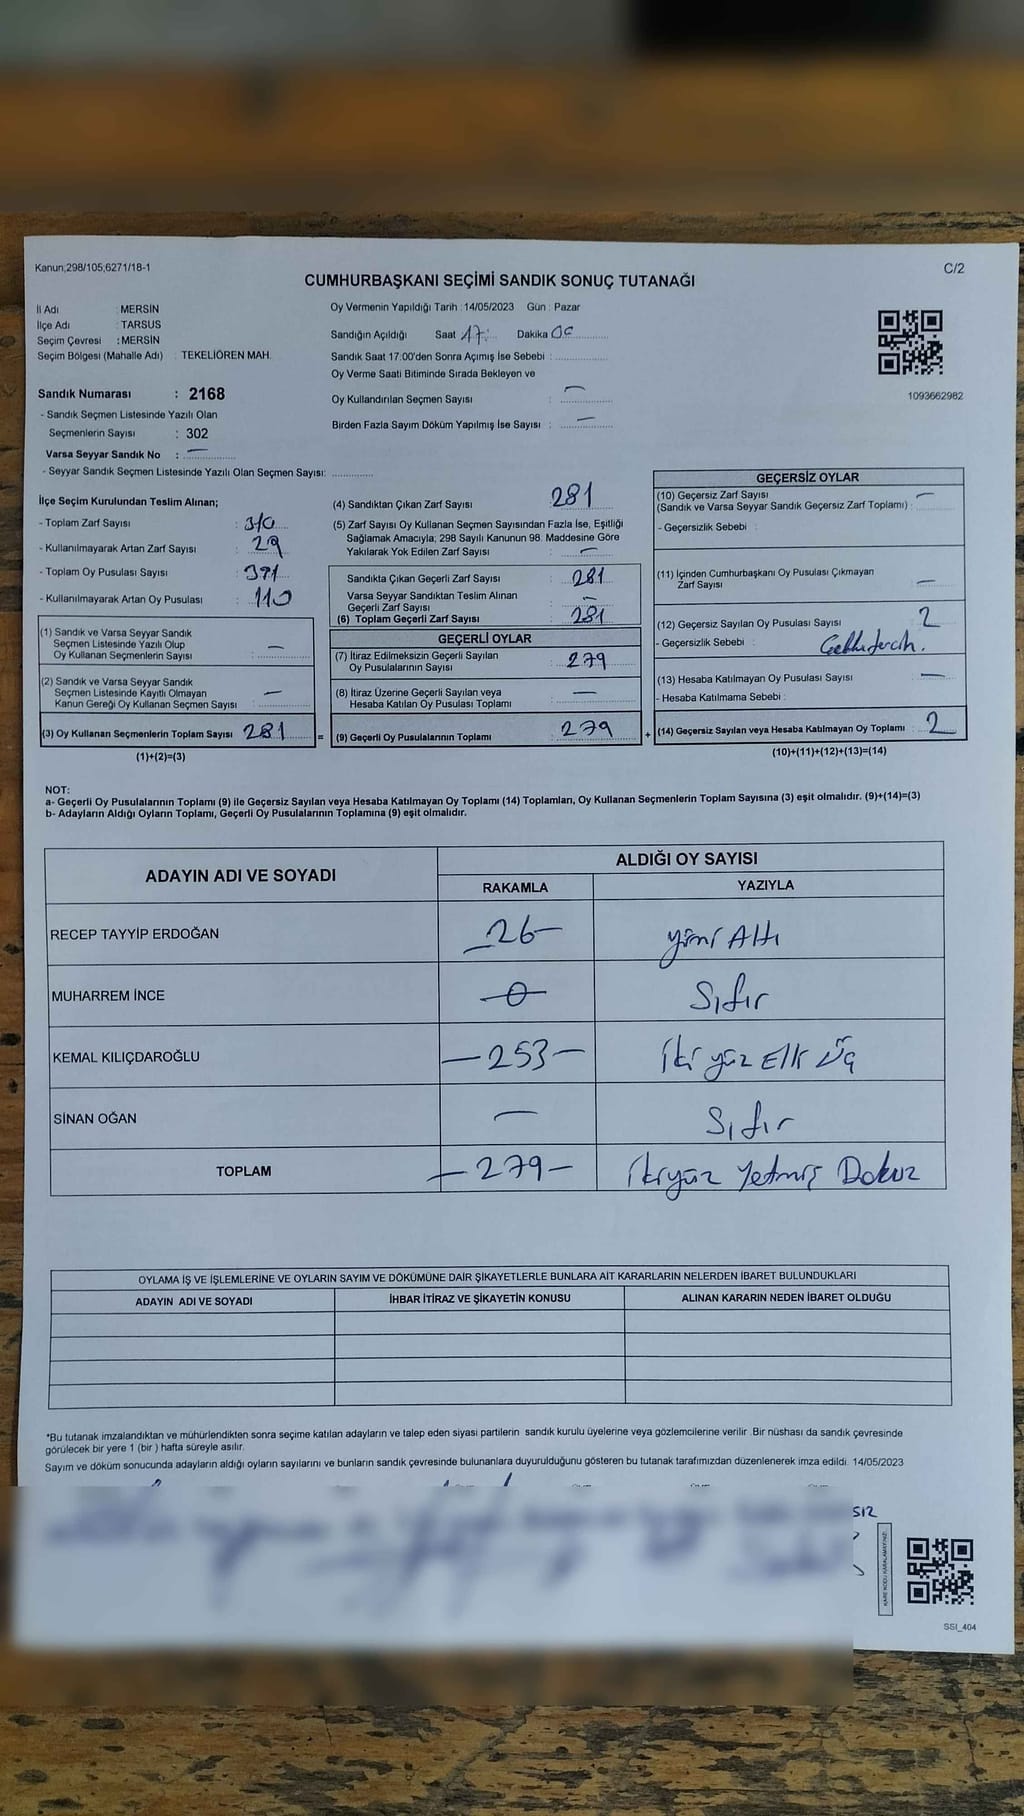 Kanun;298/105;6271/18-1
C/2
CUMHURBAŞKANI SEÇİMİ SANDIK SONUÇ TUTANAĞI
İl Adı : MERSİN
İlçe Adı : TARSUS
Seçim Çevresi : MERSİN
Seçim Bölgesi (Mahalle Adı) : TEKELİÖREN MAH.
Sandık Numarası : 2168
- Sandık Seçmen Listesinde Yazılı Olan
Seçmenlerin Sayısı : 302
Varsa Seyyar Sandık No : —
- Seyyar Sandık Seçmen Listesinde Yazılı Olan Seçmen Sayısı:
Oy Vermenin Yapıldığı Tarih : 14/05/2023 Gün : Pazar
Sandığın Açıldığı Saat 17: Dakika 00
Sandık Saat 17:00'den Sonra Açımış İse Sebebi :
Oy Verme Saati Bitiminde Sırada Bekleyen ve
Oy Kullandırılan Seçmen Sayısı : —
Birden Fazla Sayım Döküm Yapılmış İse Sayısı : —
1093662982
İlçe Seçim Kurulundan Teslim Alınan;
- Toplam Zarf Sayısı : 310
- Kullanılmayarak Artan Zarf Sayısı : 29
- Toplam Oy Pusulası Sayısı : 391
- Kullanılmayarak Artan Oy Pusulası : 110
(1) Sandık ve Varsa Seyyar Sandık
Seçmen Listesinde Yazılı Olup
Oy Kullanan Seçmenlerin Sayısı : —
(2) Sandık ve Varsa Seyyar Sandık
Seçmen Listesinde Kayıtlı Olmayan
Kanun Gereği Oy Kullanan Seçmen Sayısı : —
(3) Oy Kullanan Seçmenlerin Toplam Sayısı 281
(1)+(2)=(3)
(4) Sandıktan Çıkan Zarf Sayısı : 281
(5) Zarf Sayısı Oy Kullanan Seçmen Sayısından Fazla İse, Eşitliği
Sağlamak Amacıyla; 298 Sayılı Kanunun 98. Maddesine Göre
Yakılarak Yok Edilen Zarf Sayısı : —
Sandıkta Çıkan Geçerli Zarf Sayısı : 281
Varsa Seyyar Sandıktan Teslim Alınan
Geçerli Zarf Sayısı : —
(6) Toplam Geçerli Zarf Sayısı : 281
GEÇERLİ OYLAR
(7) İtiraz Edilmeksizin Geçerli Sayılan
Oy Pusulalarının Sayısı : 279
(8) İtiraz Üzerine Geçerli Sayılan veya
Hesaba Katılan Oy Pusulası Toplamı : —
= (9) Geçerli Oy Pusulalarının Toplamı : 279
GEÇERSİZ OYLAR
(10) Geçersiz Zarf Sayısı
(Sandık ve Varsa Seyyar Sandık Geçersiz Zarf Toplamı) : —
- Geçersizlik Sebebi :
(11) İçinden Cumhurbaşkanı Oy Pusulası Çıkmayan
Zarf Sayısı : —
(12) Geçersiz Sayılan Oy Pusulası Sayısı : 2
- Geçersizlik Sebebi : tercih.
(13) Hesaba Katılmayan Oy Pusulası Sayısı : —
- Hesaba Katılmama Sebebi :
+ (14) Geçersiz Sayılan veya Hesaba Katılmayan Oy Toplamı : 2
(10)+(11)+(12)+(13)=(14)
NOT:
a- Geçerli Oy Pusulalarının Toplamı (9) ile Geçersiz Sayılan veya Hesaba Katılmayan Oy Toplamı (14) Toplamları, Oy Kullanan Seçmenlerin Toplam Sayısına (3) eşit olmalıdır. (9)+(14)=(3)
b- Adayların Aldığı Oyların Toplamı, Geçerli Oy Pusulalarının Toplamına (9) eşit olmalıdır.
ADAYIN ADI VE SOYADI ALDIĞI OY SAYISI
RAKAMLA YAZIYLA
RECEP TAYYİP ERDOĞAN —26— yirmi Altı
MUHARREM İNCE —0— Sıfır
KEMAL KILIÇDAROĞLU —253— İki yüz Elli Üç
SİNAN OĞAN — Sıfır
TOPLAM —279— İkiyüz Yetmiş Dokuz
OYLAMA İŞ VE İŞLEMLERİNE VE OYLARIN SAYIM VE DÖKÜMÜNE DAİR ŞİKAYETLERLE BUNLARA AİT KARARLARIN NELERDEN İBARET BULUNDUKLARI
ADAYIN ADI VE SOYADI İHBAR İTİRAZ VE ŞİKAYETİN KONUSU ALINAN KARARIN NEDEN İBARET OLDUĞU
*Bu tutanak imzalandıktan ve mühürlendikten sonra seçime katılan adayların ve talep eden siyasi partilerin sandık kurulu üyelerine veya gözlemcilerine verilir. Bir nüshası da sandık çevresinde
görülecek bir yere 1 (bir) hafta süreyle asılır.
Sayım ve döküm sonucunda adayların aldığı oyların sayılarını ve bunların sandık çevresinde bulunanlara duyurulduğunu gösteren bu tutanak tarafımızdan düzenlenerek imza edildi. 14/05/2023
SIZ
SSI_404